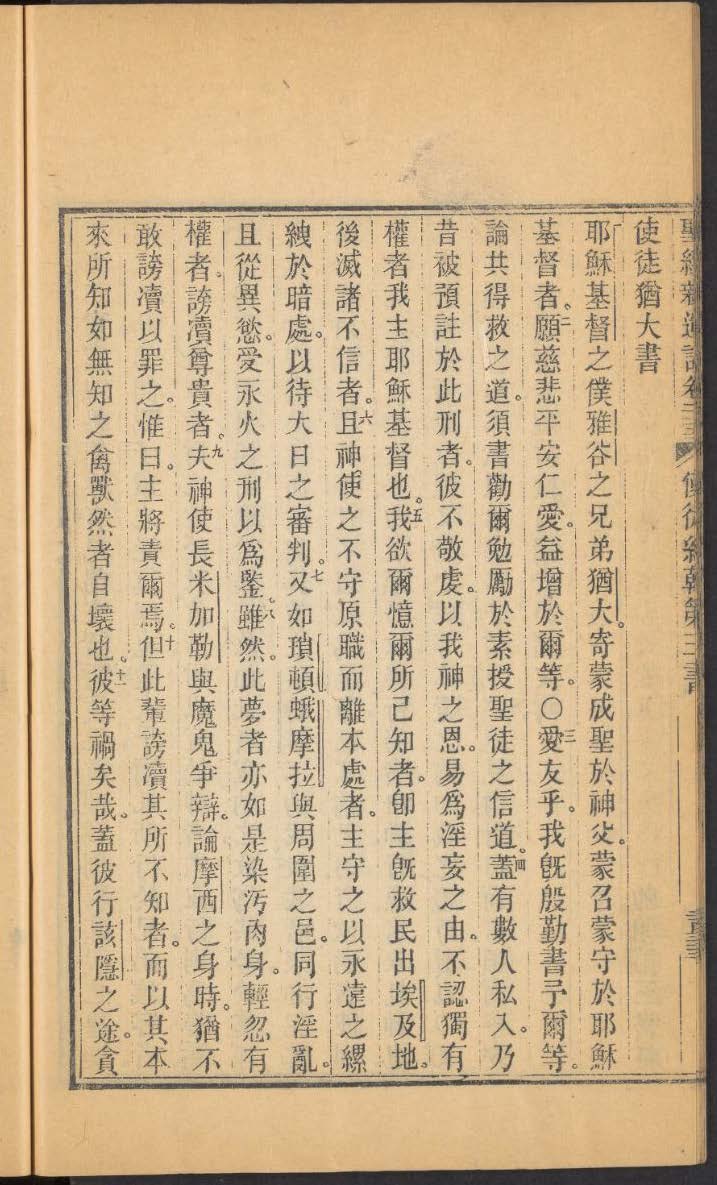 使徒猶大書
耶穌基督之僕雅各之兄弟猶大。寄蒙成聖於神父。蒙召蒙守於耶穌
基督者。二願慈悲平安仁愛。益增於爾等。〇三愛友乎。我旣殷勤書予爾等。
論共得救之道。須書勸爾勉勵於素授聖徒之信道。四蓋有數人私入。乃
昔被預註於此刑者。彼不敬虔。以我神之恩。易爲淫妄之由。不認獨有
權者我主耶穌基督也。五我欲爾憶爾所已知者。卽主旣救民出埃及地。
後滅諸不信者。六且神使之不守原職而離本處者。主守之以永遠之縲
絏於暗處。以待大日之審判。七又如瑣頓蛾摩拉與周圍之邑。同行淫亂。
且從異慾。愛永火之刑以爲鑒。八雖然。此夢者亦如是染汚肉身。輕忽有
權者。謗瀆尊貴者。九夫神使長米加勒與魔鬼爭辯。論摩西之身時。猶不
敢謗瀆以罪之。惟曰。主將責爾焉。十但此輩謗瀆其所不知者。而以其本
來所知如無知之禽獸然者自壞也。十一彼等禍矣哉。蓋彼行該隱之途。貪